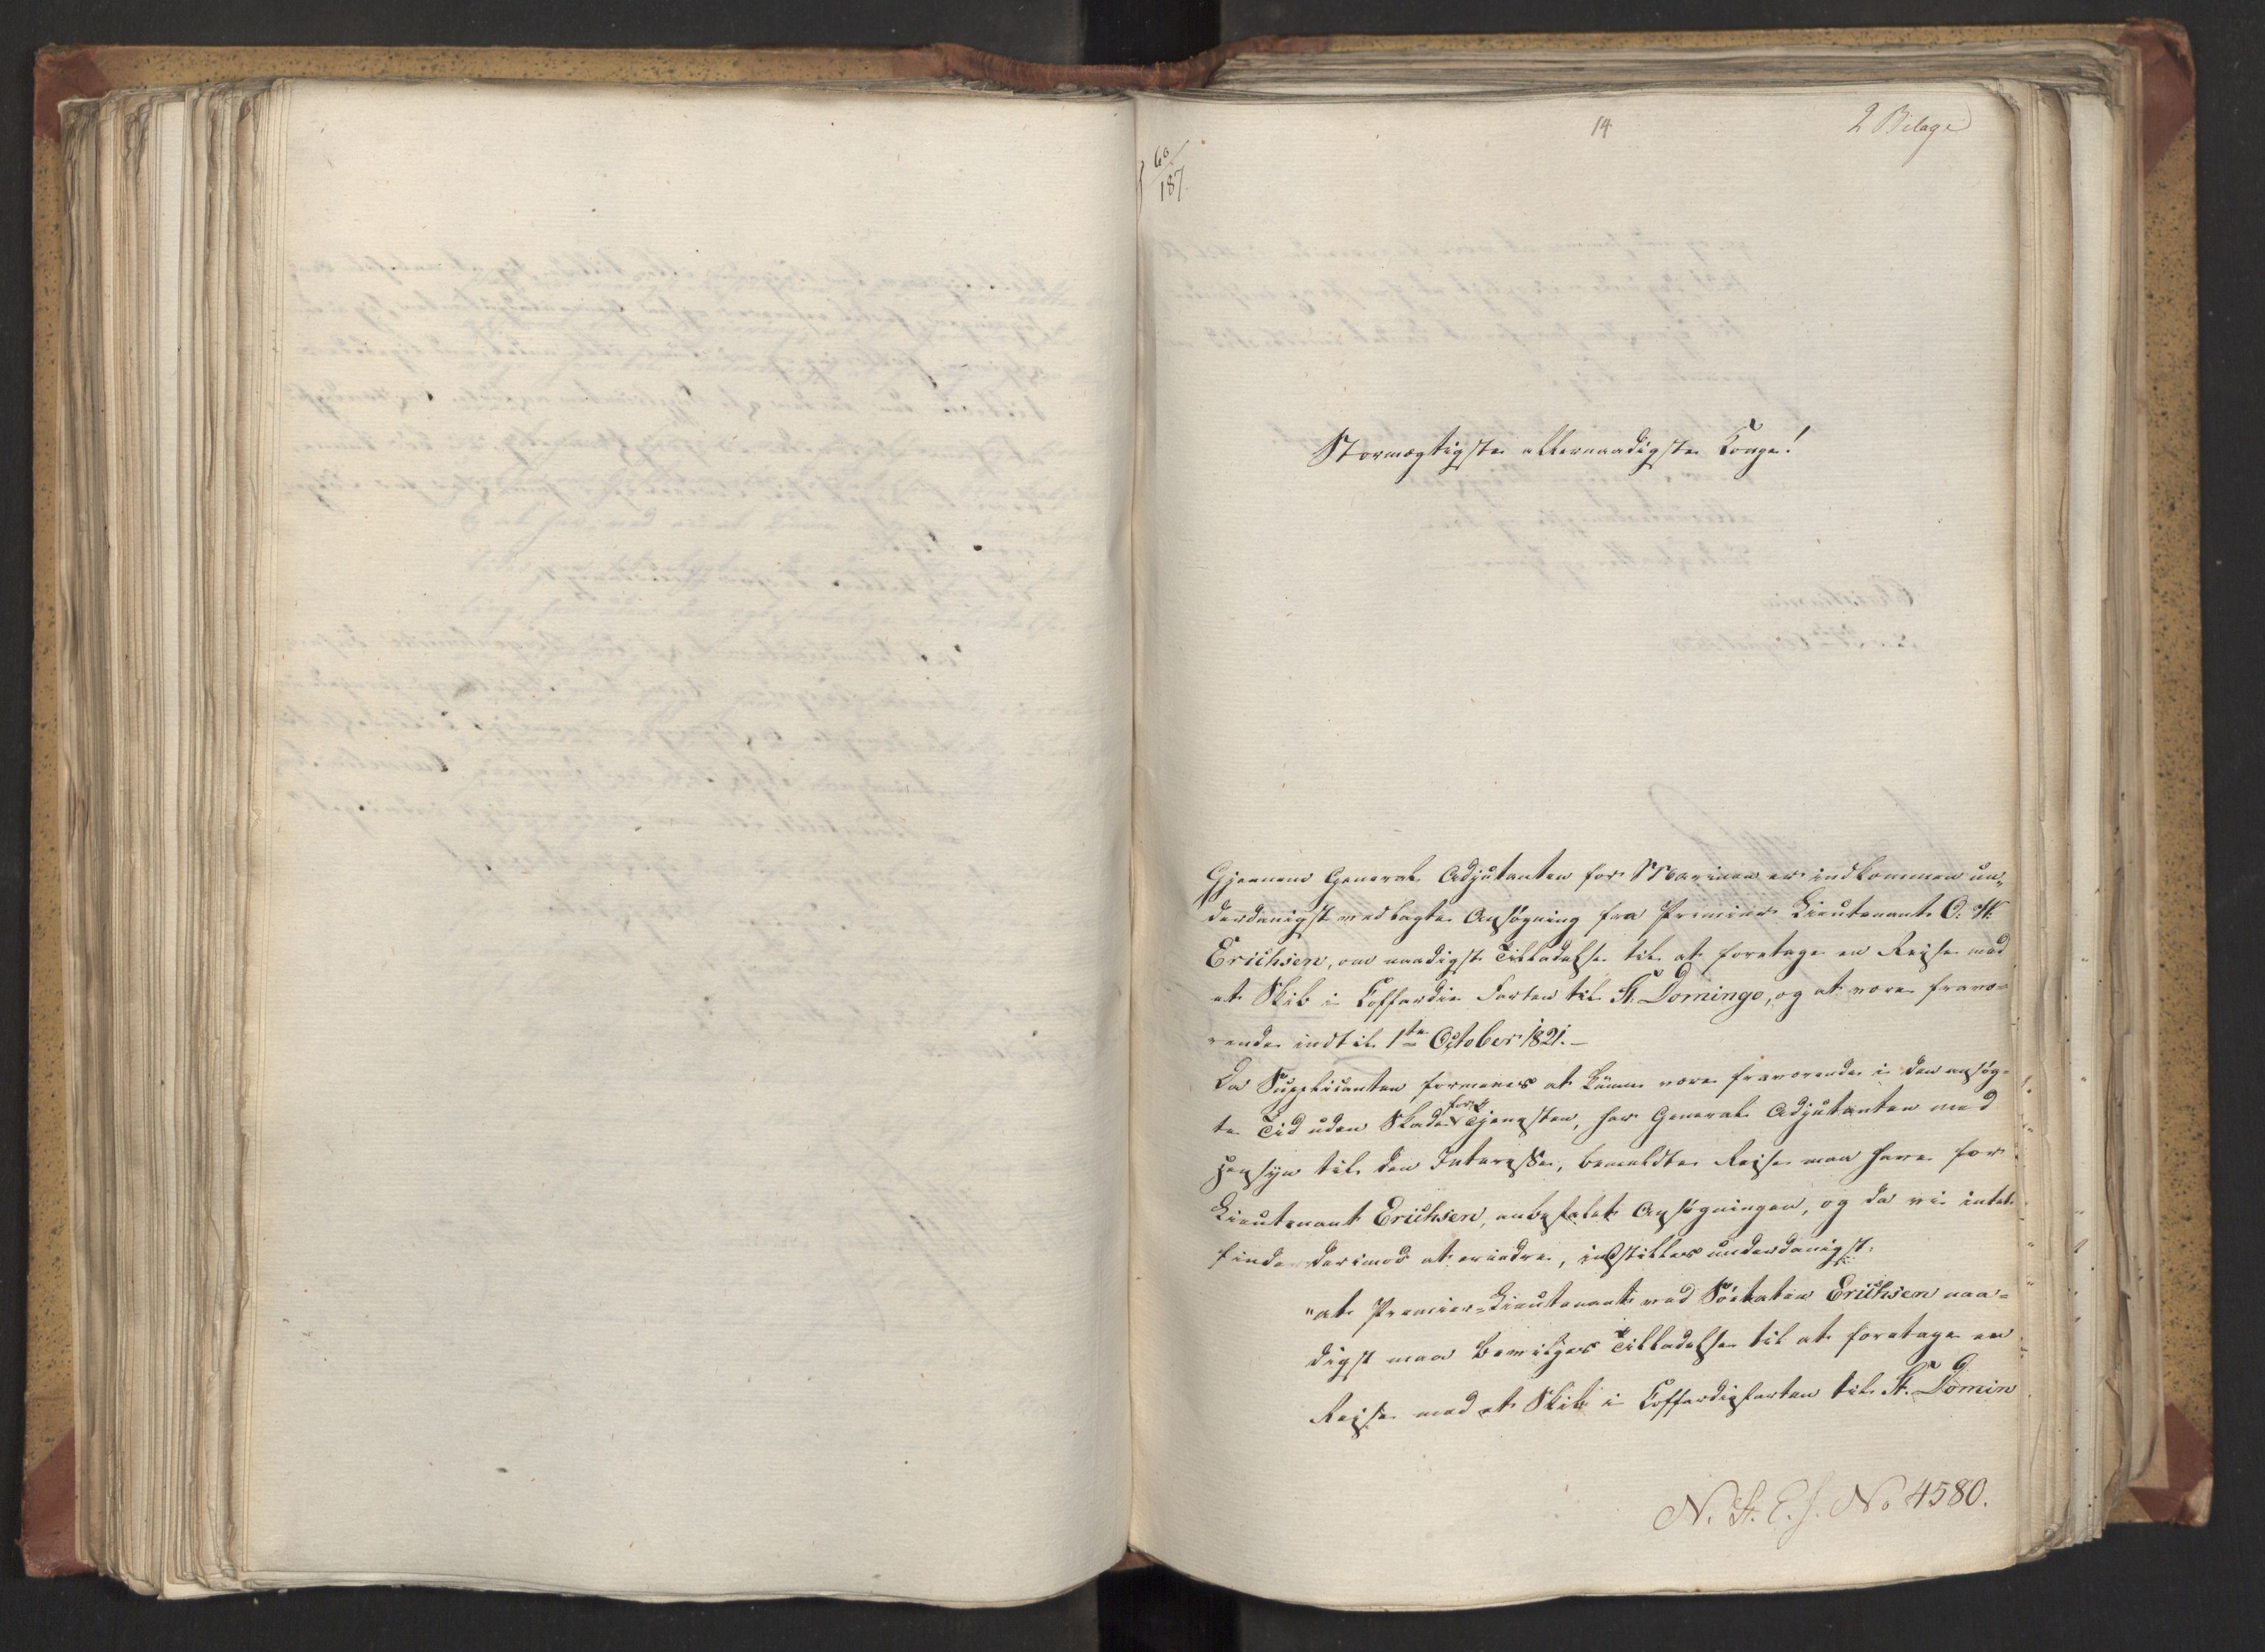 14
2 Bilage
60/187
Stormægtigste allernaadigste Konge!
Gjennem General Adjutanten for Marinen er indkommen un„
derdanigst medlagte Ansøgning fra Premier Lieutenant O. W.
Erichsen, om naadigst Tilladelse til at foretage en Rejse med
et Skib i Coffardie Farten til St. Domingo, og at være fravæ-
rende indtil 1te October 1821.-
Da Supplicanten formenes at kunne være fraværende i den ansøg-
te Tid uden Skade for Tjenesten, har General Adjutanten med
Hensyn til den Interesse, bemeldte Rejse maa have for
Lieutenant Erichsen, anbefalet Ansøgningen, og da vi intet
finder derimod at erindre, indstilles underdanigst:
"at Premier-Lieutenant ved Søetaten Erichsen naa-
digst maa bevilges Tilladelse til at foretage en
Rejse med et Skib i Coffardiefarten til St. Domin
N. St. E. J. No 4580.